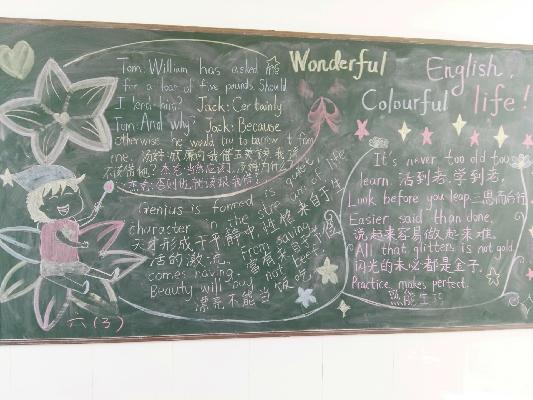 Wonderful
English,
Colourful life!
Tom: William has asked me
for a loan of five pounds. Should
I lend him? Jack: Certainly
Tom: And why? Jack: Because
otherwise he would try to borrow it from
me.
Genius is formed in quiet,
character in the stream of life
天才形成于平静中,性格来自于生
活的激流.
From saving
comes having.
富有来自于节俭
Beauty will buy not beef.
漂亮不能当饭吃.
It's never too old too
learn. 活到老,学到老,
Look before you leap. 三思而后行.
Easier said than done.
说起来容易做起来难.
All that glitters is not gold.
闪光的未必都是金子.
Practice makes perfect.
熟能生巧
六(3)